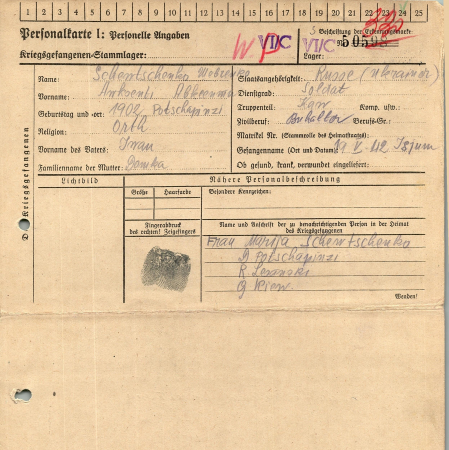 1 2 3 4 5 6 7 8 9 10 11 12 13 14 15 16 17 18 19 20 21 22 23 24 25
Personalkarte I: Personelle Angaben
Beschriftung der Erkennungsmarke
Nr. 50598
Kriegsgefangenen-Stammlager:
VI/C
VI/C
Lager:
Name: Schewtschenko
Staatsangehörigkeit: Russe (Ukrainer)
Vorname:
Dienstgrad: Soldat
Truppenteil: Komp. usw.:
Geburtstag und -ort: 1902 Potschapinzi
Zivilberuf: Berufs-Gr.:
Religion: Orth
Matrikel Nr. (Stammrolle des Heimatstaates):
Vorname des Vaters: Iwan
Gefangennahme (Ort und Datum): 19 V. 42 Isjum
Familienname der Mutter:
Ob gesund, krank, verwundet eingeliefert:
Des Kriegsgefangenen
Lichtbild
Nähere Personalbeschreibung
Größe
Haarfarbe
Besondere Kennzeichen:
Fingerabdruck
des rechten! Zeigefingers
Name und Anschrift der zu benachrichtigenden Person in der Heimat
des Kriegsgefangenen
Frau Marija Schewtschenko
D Potschapinzi
R
G Kiew
Wenden!